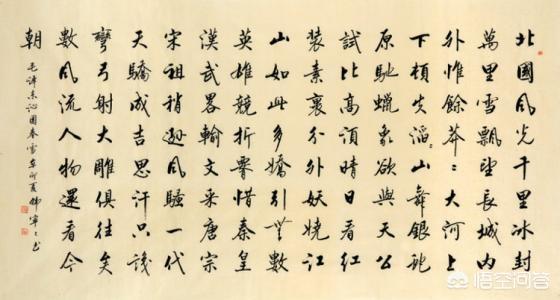 北國風光千里冰封
萬里雪飄望長城內
外惟餘莽〻大河上
下頓失滔〻山舞銀蛇
原馳蠟象欲與天公
試比高須晴日看紅
裝素裹分外妖嬈江
山如此多嬌引無數
英雄競折腰惜秦皇
漢武畧輸文采唐宗
宋祖稍遜風騷一代
天驕成吉思汗只識
彎弓射大雕俱往矣
數風流人物還看今
朝
毛澤東沁園春雪辛卯夏韓寧〻书
悟空问答